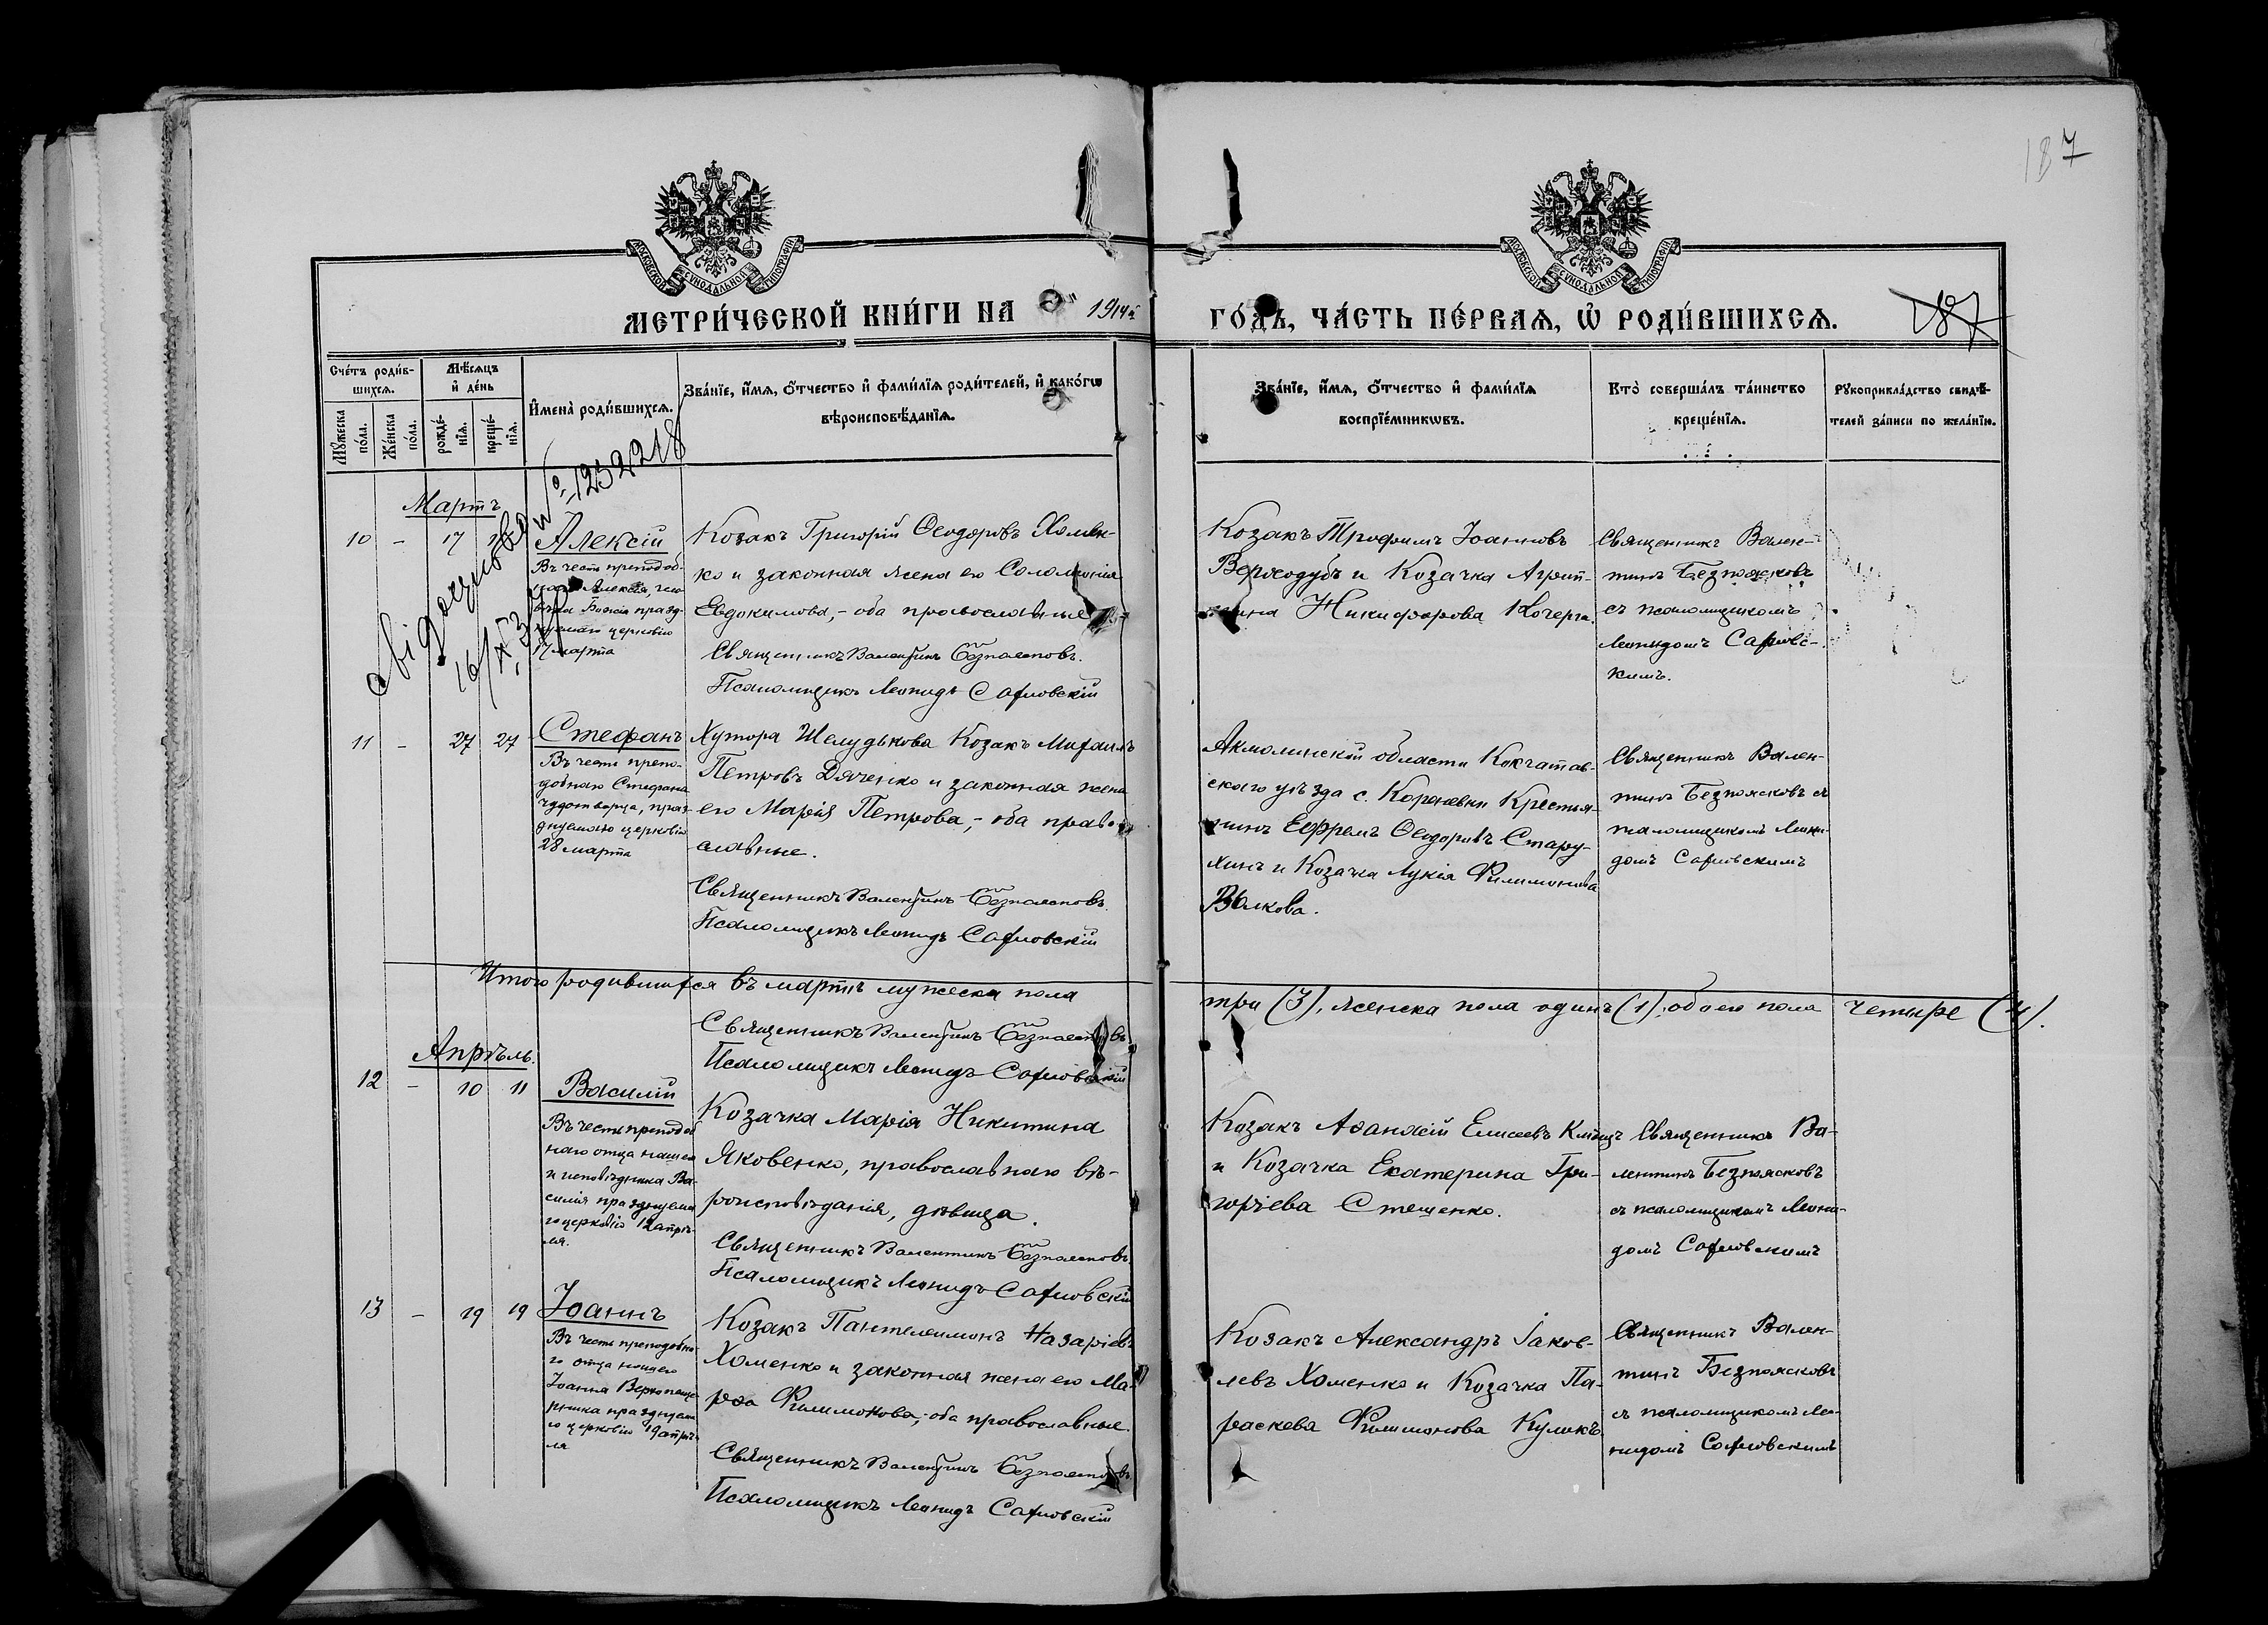 187
МОСКОВСКОЙ СѴНОДАЛЬНОЙ ТИПОГРАФІИ
МОСКОВСКОЙ СѴНОДАЛЬНОЙ ТИПОГРАФІИ
МЕТРИ́ЧЕСКОЙ КНИ́ГИ НА 1914й ГО́ДЪ, ЧА́СТЬ ПЕ́РВАЯ, Ѡ҆ РОДИ́ВШИХСЯ.
187
Сче́тъ роди́в-
шихся.
Мꙋ́жеска
по́ла.
Же́нска
по́ла.
Мѣ́сяцъ
и҆ де́нь
рожде́-
нїя.
креще́-
нїя.
И҆мена̀ роди́вшихся.
Зва́нїе, и҆́мя, ѻ҆́тчество и҆ фами́лїя роди́телей, и҆ како́гѡ
вѣроисповѣ́данїя.
Зва́нїе, и҆́мя, ѻ҆́тчество и҆ фами́лїя
воспрїе́мникѡвъ.
Кто̀ соверша́лъ та́инство
креще́нїя.
Рꙋкоприкла́дство свидѣ́-
телей за́писи по жела́нїю.
№ 1232218
Мартъ
10 - 17
Алексій
Въ честь преподоб-
наго Алексія, чело-
вѣка Божія празд-
нуемаго церковію
17 марта
Козакъ Григорій Ѳеодоровъ Хомен-
ко и законная жена его Соломонія
Евдокимова, - оба православные
Священникъ Валентинъ Безпоясковъ.
Псаломщикъ Леонидъ Сафповскій
Козакъ Трофимъ Іоанновъ
Вернодубъ и Козачка Агрип-
пина Никифорова Кочерга.
Священникъ Вален-
тинъ Безпоясковъ
съ псаломщикомъ
Леонидомъ
11 - 27 27
Стефанъ
Въ честь препо-
добнаго Стефана
чудотворца, праз-
днуемаго церковію
28 марта
Хутора Шелудькова Козакъ Михаилъ
Петровъ Дяченко и законная жена
его Марія Петрова, - оба право-
славные.
Священникъ Валентинъ Безпоясковъ.
Псаломщикъ Леонидъ
Акмолинской области Кокчетав-
скаго уѣзда с. Кореневки Крестья-
нинъ Ефремъ Ѳеодоровъ Стару-
хинъ и Козачка Лукія Филимонова
Волкова.
Священникъ Вален-
тинъ Безпоясковъ съ
псаломщикомъ Леони-
домъ
Итого родившихся въ мартѣ мужеска пола три (3), женска пола одинъ (1), обоего пола четыре (4).
Священникъ Валентинъ Безпоясковъ
Псаломщикъ Леонидъ
Апрѣль.
12 - 10 11
Василій
Въ честь преподоб
наго отца нашего
и исповѣдника Ва-
силія празднуема
го церковію 12 апрѣ-
ля.
Козачка Марія Никитина
Яковенко, православнаго вѣ-
роисповѣданія, дѣвица.
Священникъ Валентинъ Безпоясковъ
Псаломщикъ Леонидъ
Козакъ Аѳанасій Елисеевъ
и Козачка Екатерина Гри-
горіева Стешенко.
Священникъ Ва-
лентинъ Безпоясковъ
съ псаломщикомъ Леони-
домъ
13 - 19 19
Іоаннъ
Въ честь преподобна-
го отца нашего
Іоанна Ветхопеще-
рника празднуема
го церковію 19 апрѣ-
ля
Козакъ Пантелеимонъ Назаріевъ
Хоменко и законная жена его Ма-
рѳа Филимонова, - оба православные.
Священникъ Валентинъ Безпоясковъ
Псаломщикъ Леонидъ
Козакъ Александръ Іаков-
левъ Хоменко и Козачка Па-
раскева Филимонова Куликъ
Священникъ Вален-
тинъ Безпоясковъ
съ псаломщикомъ Лео-
нидомъ